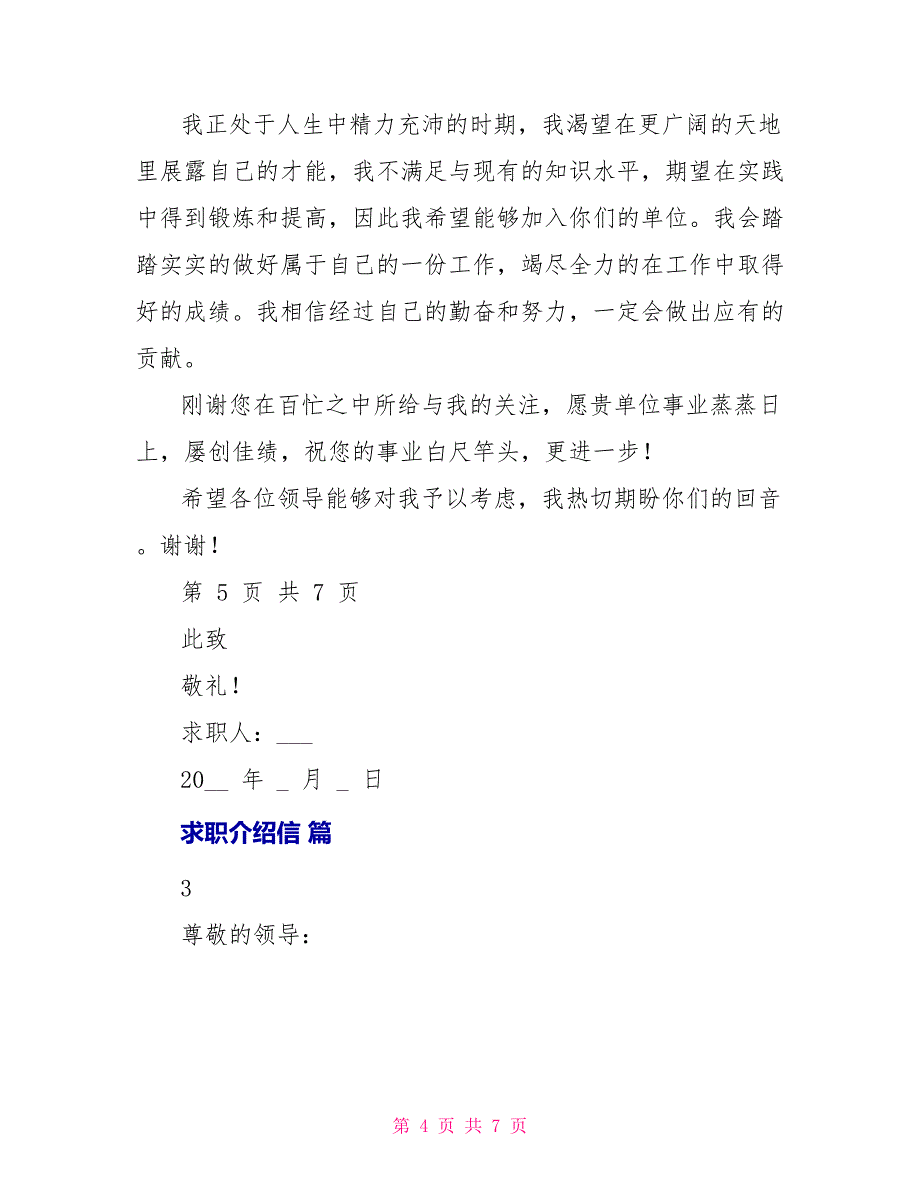 我正处于人生中精力充沛的时期，我渴望在更广阔的天地
里展露自己的才能，我不满足与现有的知识水平，期望在实践
中得到锻炼和提高，因此我希望能够加入你们的单位。我会踏
踏实实的做好属于自己的一份工作，竭尽全力的在工作中取得
好的成绩。我相信经过自己的勤奋和努力，一定会做出应有的
贡献。
刚谢您在百忙之中所给与我的关注，愿贵单位事业蒸蒸日
上，屡创佳绩，祝您的事业白尺竿头，更进一步！
希望各位领导能够对我予以考虑，我热切期盼你们的回音
。谢谢！
第 5 页 共 7 页
此致
敬礼！
求职人：___
20__ 年 _ 月 _ 日
求职介绍信 篇
3
尊敬的领导：
第 4 页 共 7 页